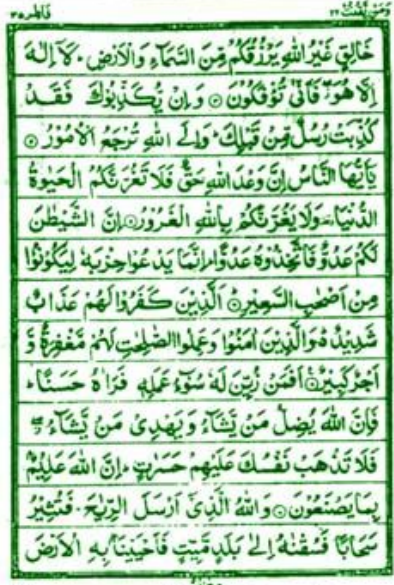 ومن يقنت ٢٢ فاطر ٣٥
خَالِقٍ غَيْرُ اللّٰهِ يَرْزُقُكُمْ مِّنَ السَّمَآءِ وَالْاَرْضِ ؕ لَآ اِلٰهَ
اِلَّا هُوَ ۖ فَاَنّٰى تُؤْفَكُوْنَ ۝ وَاِنْ يُّكَذِّبُوْكَ فَقَدْ
كُذِّبَتْ رُسُلٌ مِّنْ قَبْلِكَ ؕ وَاِلَى اللّٰهِ تُرْجَعُ الْاُمُوْرُ ۝
يٰۤاَيُّهَا النَّاسُ اِنَّ وَعْدَ اللّٰهِ حَقٌّ فَلَا تَغُرَّنَّكُمُ الْحَيٰوةُ
الدُّنْيَا ۥ وَلَا يَغُرَّنَّكُمْ بِاللّٰهِ الْغَرُوْرُ ۝ اِنَّ الشَّيْطٰنَ
لَكُمْ عَدُوٌّ فَاتَّخِذُوْهُ عَدُوًّا ؕ اِنَّمَا يَدْعُوْا حِزْبَهٗ لِيَكُوْنُوْا
مِنْ اَصْحٰبِ السَّعِيْرِ ۝ اَلَّذِيْنَ كَفَرُوْا لَهُمْ عَذَابٌ
شَدِيْدٌ ۥ وَالَّذِيْنَ اٰمَنُوْا وَعَمِلُوا الصّٰلِحٰتِ لَهُمْ مَّغْفِرَةٌ وَّ
اَجْرٌ كَبِيْرٌ ۝ اَفَمَنْ زُيِّنَ لَهٗ سُوْٓءُ عَمَلِهٖ فَرَاٰهُ حَسَنًا ؕ
فَاِنَّ اللّٰهَ يُضِلُّ مَنْ يَّشَآءُ وَيَهْدِىْ مَنْ يَّشَآءُ ۖ
فَلَا تَذْهَبْ نَفْسُكَ عَلَيْهِمْ حَسَرٰتٍ ؕ اِنَّ اللّٰهَ عَلِيْمٌۢ
بِمَا يَصْنَعُوْنَ ۝ وَاللّٰهُ الَّذِىْۤ اَرْسَلَ الرِّيٰحَ فَتُثِيْرُ
سَحَابًا فَسُقْنٰهُ اِلٰى بَلَدٍ مَّيِّتٍ فَاَحْيَيْنَا بِهِ الْاَرْضَ